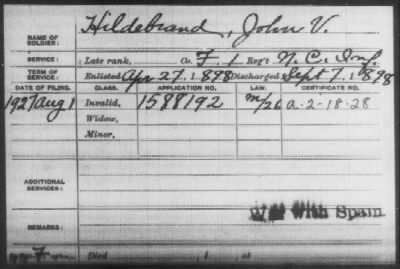 NAME OF SOLDIER: Hildebrand, John V.
SERVICE: Late rank, Co. F. 1 Reg't N. C. Inf.
TERM OF SERVICE: Enlisted Apr 27, 1898 Discharged Sept 7, 1898
DATE OF FILING. CLASS. APPLICATION NO. LAW. CERTIFICATE NO.
1927 Aug 1 Invalid, 1588192 a-2-18-28
Widow,
Minor,
ADDITIONAL SERVICES:
War With Spain
REMARKS:
Died , 1 , at